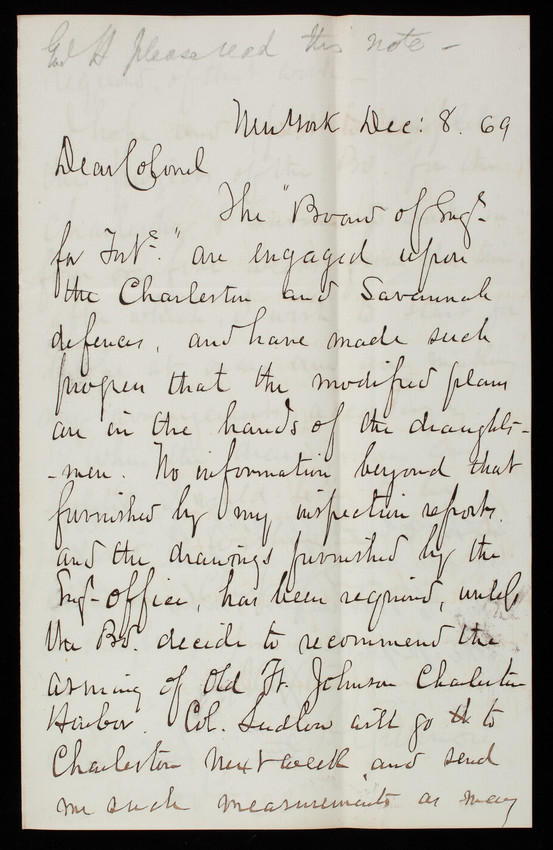 Genl H please read this note -
New York Dec: 8. 69
Dear Colonel
The "Board of Engrs
for Forts." are engaged upon
the Charleston and Savannah
defences, and have made such
progress that the modified plans
are in the hands of the draughts-
-men. No information beyond that
furnished by my inspection reports
and the drawings furnished by the
Engr office, has been required, until
the Bd. decide to recommend the
arming of Old Ft. Johnson Charleston
Harbor. Col. Ludlow will go to
Charleston next week and send
me such measurements as may